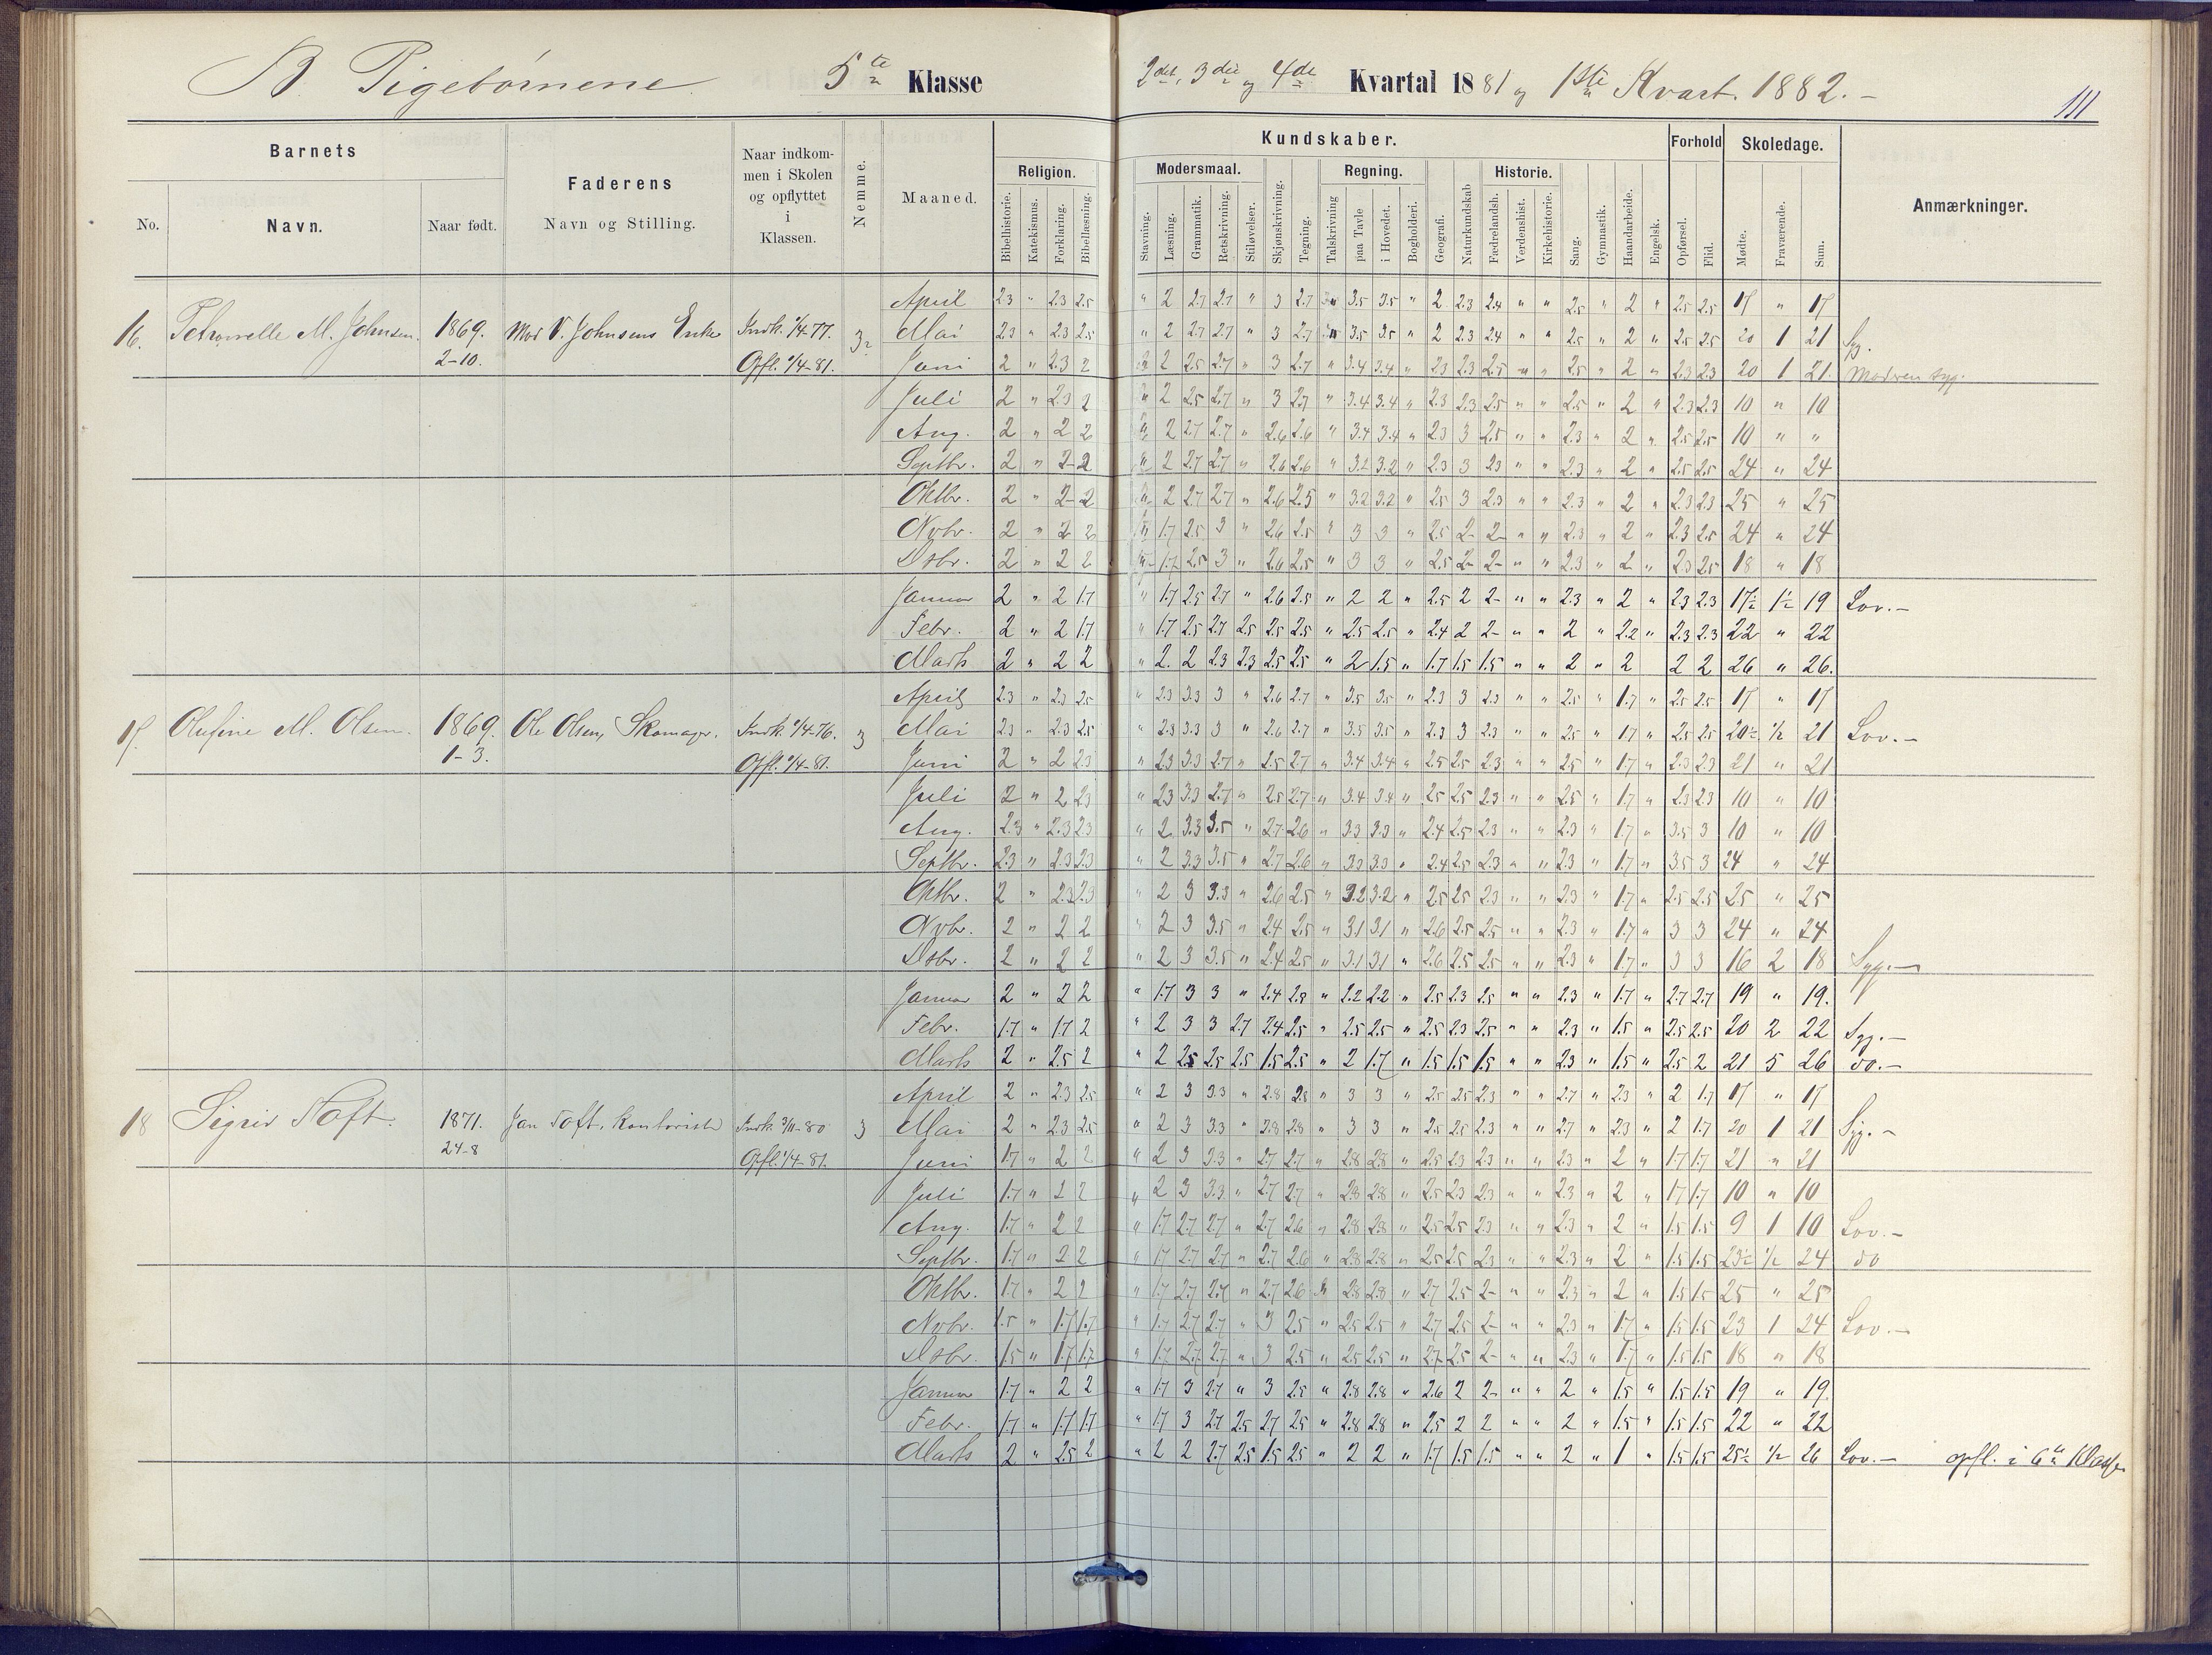 B. Pigebørnene. 5te Klasse
2det, 3die og 4de Kvartal 1881 og 1ste Kvart. 1882.-
111
Barnets
No.
Navn.
Naar født.
Faderens
Navn og Stilling.
Naar indkom-
men i Skolen
og opflyttet
i
Klassen.
Nemme.
Maaned.
Kundskaber.
Religion.
Bibelhistorie.
Katekismus.
Forklaring.
Bibellæsning.
Modersmaal.
Stavning.
Læsning.
Grammatik.
Retskrivning.
Stiløvelser.
Skjønskrivning.
Tegning.
Regning.
Talskrivning
paa Tavle
i Hovedet.
Bogholderi.
Geografi.
Naturkundskab
Historie.
Fædrelandsh.
Verdenshist.
Kirkehistorie.
Sang.
Gymnastik.
Haandarbeide.
Engelsk.
Forhold
Opførsel.
Flid.
Skoledage.
Mødte.
Fraværende.
Sum.
Anmærkninger.
16. M. Johnsen. 1869. 2-10. V. Johnsens Enke Indk. 1/4-77. Opfl. 1/4-81.
April 2.3 " 2.3 2.5 " 2 2.7 2.7 " 3 2.7 3.5 3.5 " 2 2.3 2.4 " " 2.5 " 2 " 2.5 2.5 17 " 17
Mai 2.3 " 2.3 2.5 " 2 2.7 2.7 " 3 2.7 " 3.5 3.5 " 2 2.3 2.4 " " 2.5 " 2 " 2.5 2.5 20 1 21 Syg.
Juni 2 " 2.3 2 " 2 2.5 2.7 " 3 2.7 " 3.4 3.4 " 2.3 2.3 2.5 " " 2.5 " 2 " 2.3 2.3 20 1 21. Modren syg.
Juli 2 " 2.3 2 " 2 2.5 2.7 " 3 2.7 " 3.4 3.4 " 2.3 2.3 2.5 " " 2.5 " 2 " 2.3 2.3 10 " 10
Aug. 2 " 2 2 " 2 2.7 2.7 " 2.6 2.6 " 3.4 3.4 " 2.3 3 2.5 " " 2.3 " 2 " 2.5 2.5 10 " "
Septbr. 2 " 2 2 " 2 2.7 2.7 " 2.6 2.6 " 3.2 3.2 " 2.3 3 2.3 " " 2.3 " 2 " 2.5 2.5 24 " 24
Oktbr. 2 " 2 2 " 2 2.7 2.7 " 2.6 2.5 " 3.2 3.2 " 2.5 3 2.3 " " 2.3 " 2 " 2.3 2.3 25 " 25
Novbr. 2 " 2 2 " 1.7 2.5 3 " 2.6 2.5 " 3 3 " 2.5 2 2 " " 2.3 " 2 " 2.3 2.5 24 " 24
Dsbr. 2 " 2 2 " 1.7 2.5 3 " 2.6 2.5 " 3 3 " 2.5 2 2 " " 2.3 " 2 " 2.3 2.5 18 " 18
Januar 2 " 2 1.7 " 1.7 2.5 2.7 " 2.6 2.5 " 2 2 " 2.5 2 2 " " 2.3 " 2 " 2.3 2.3 17½ 1½ 19 Lov.-
Febr. 2 " 2 1.7 " 1.7 2.5 2.7 2.5 2.5 2.5 " 2.5 2.5 " 2.4 2 2 " " 2 " 2.2 " 2.3 2.3 22 " 22
Marts 2 " 2 2 " 2. 2 2.3 2.3 2.5 2.5 " 2 1.5 " 1.7 1.5 1.5 " " 2 " 2 2 2 26 " 26.
17. Olufine M. Olsen. 1869. 1-3. Ole Olsen, Skomager. Indk. 1/4-76. Opfl. 1/4-81. 3
April 2.3 " 2.3 2.5 " 2.3 3.3 3 " 2.6 2.7 " 3.5 3.5 " 2.3 3 2.3 " " 2.5 " 1.7 " 2.5 2.5 17 " 17
Mai 2.3 " 2.3 2.5 " 2.3 3.3 3 " 2.6 2.7 " 3.5 3.5 " 2.3 3 2.3 " " 2.5 " 1.7 " 2.5 2.5 20½ ½ 21 Lov.-
Juni 2 " 2 2.3 " 2.3 3.3 2.7 " 2.5 2.7 " 3.4 3.4 " 2.5 2.5 2.3 " " 2.5 " 1.7 " 2.3 2.3 21 " 21
Juli 2 " 2 2.3 " 2.3 3.3 2.7 " 2.5 2.7 " 3.4 3.4 " 2.5 2.5 2.3 " " 2.5 " 1.7 " 2.3 2.3 10 " 10
Aug. 2.3 " 2.3 2.3 " 2 3.3 3.5 " 2.7 2.6 " 3.3 3.3 " 2.4 2.5 2.3 " " 2.3 " 1.7 " 3.5 3 10 " 10
Septbr. 2.3 " 2.3 2.3 " 2 3.3 3.5 " 2.7 2.6 " 3.3 3.3 " 2.4 2.5 2.3 " " 2.3 " 1.7 " 3.5 3 24 " 24
Oktbr. 2 " 2.3 2.3 " 2 3 3.3 " 2.6 2.5 " 3.2 3.2 " 2.5 2.5 2.3 " " 2.3 " 1.7 " 2.5 2.5 25 " 25
Novbr. 2 " 2 2 " 2 3 3.5 " 2.4 2.5 " 3.1 3.1 " 2.6 2.5 2.5 " " 2.3 " 1.7 " 3 3 24 " 24
Dsbr. 2 " 2 2 " 2 3 3.5 " 2.4 2.5 " 3.1 3.1 " 2.6 2.5 2.5 " " 2.3 " 1.7 " 3 3 16 2 18 Syg.-
Januar 2 " 2 2 " 1.7 3 3 " 2.4 2.5 " 2.2 2.2 " 2.5 2.3 2.5 " " 2.3 " 1.7 " 2.7 2.7 19 " 19.
Febr. 1.7 " 1.7 2 " 2 3 3 2.7 2.4 2.5 " 2.5 2.5 " 2.5 2.3 2.5 " " 2.3 " 1.5 " 2.5 2.5 20 2 22 Syg.-
Marts 2 " 2.5 2 " 2 2.5 2.5 2.5 1.5 2.5 " 2 1.7 " 1.5 1.5 1.5 " " 2.3 " 1.5 " 2.5 2 21 5 26 do.-
18 Sigrid Toft. 1871. 24-8 Jan Toft, Kontorist Indk. 3/11-80 Opfl. 1/4-81. 3
April 2 " 2.3 2.5 " 2 3 3.3 " 2.8 2.8 " 3 3 " 2.5 2.5 2.3 " " 2.7 " 2.3 " 2 1.7 17 " 17
Mai 2 " 2.3 2.5 " 2 3 3.3 " 2.8 2.8 " 3 3 " 2.5 2.5 2.3 " " 2.7 " 2.3 " 2 1.7 20 1 21 Syg.-
Juni 1.7 " 2 2 " 2 3 3.3 " 2.7 2.7 " 2.8 2.8 " 2.5 2.3 2.3 " " 2.3 " 2 " 1.7 1.7 21 " 21
Juli 1.7 " 2 2 " 2 3 3.3 " 2.7 2.7 " 2.8 2.8 " 2.5 2.3 2.3 " " 2.3 " 2 " 1.7 1.7 10 " 10
Aug. 1.7 " 2 2 " 1.7 2.7 2.7 " 2.7 2.6 " 2.8 2.8 " 2.5 2.5 2.3 " " 2.3 " 2 " 1.5 1.5 9 1 10 Lov.-
Septbr. 1.7 " 2 2 " 1.7 2.7 2.7 " 2.7 2.6 " 2.8 2.8 " 2.5 2.5 2.3 " " 2.3 " 2 " 1.5 1.5 23½ ½ 24 do
Oktbr. 1.7 " 2 2 " 1.7 2.7 2.7 " 2.7 2.6 2.8 2.8 " 2.7 2.5 2 " " 2.3 " 2 " 1.5 1.5 25 " 25
Novbr. 1.5 " 1.7 1.7 " 1.7 2.7 2.7 " 3 2.5 " 2.5 2.5 " 2.7 2.5 2 " " 2.3 " 1.7 " 1.5 1.5 23 1 24 Lov.-
Dsbr. 1.5 " 1.7 1.7 " 1.7 2.7 2.7 " 3 2.5 " 2.5 2.5 " 2.7 2.5 2 " " 2.3 " 1.7 " 1.5 1.5 18 " 18
Januar 1.7 " 2 2 " 1.7 3 2.7 " 3 2.5 " 2.8 2.8 " 2.6 2 2 " " 2 " 1.5 " 1.5 1.5 19 " 19.
Febr. 1.7 " 1.7 1.7 " 1.7 3 2.7 2.5 2.7 2.5 " 2.8 2.8 " 2.5 2 2 " " 2 " 1.5 " 1.5 1.5 22 " 22
Marts 2 " 2.5 2 " 2 2 2.7 2.5 1.5 2.5 " 2 2 " 1.7 1.5 1.5 " " 2 " 1 " 1.5 1.5 25½ ½ 26 Lov.- opfl. i 6te Klasse